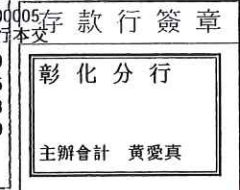 00005
行本交
存款行簽章
彰化分行
主辦會計 黃愛真